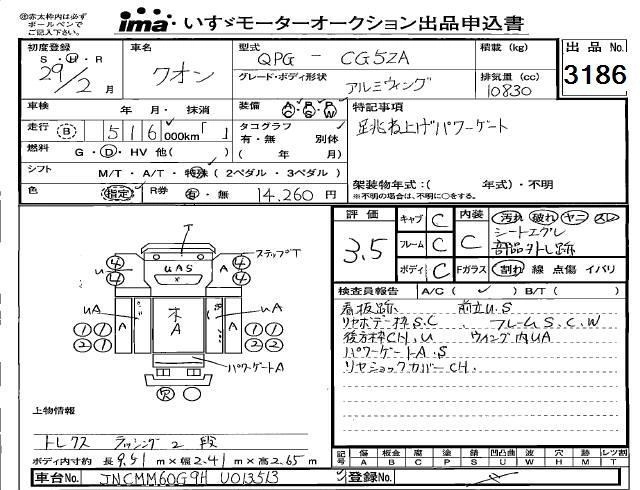 ◎赤太枠内は必ず
ボールペンで
ご記入下さい。
ima いすゞモーターオークション出品申込書
初度登録 S・H・R 29/2月
車名 クオン
型式 QPG - CG5ZA
グレード・ボディ形状 アルミウィング
積載 (kg)
排気量 (cc) 10830
出品No. 3186
車検 年 月・抹消
装備 A/C P/S P/W
特記事項
跳ね上げパワーゲート
走行 B 516,000km「 」
タコグラフ 有・無 別体
( 年 月)
燃料 G・D・HV 他( )
シフト M/T・A/T・特殊 (2ペダル・3ペダル)
架装物年式:( 年式)・不明
※不明の場合は、不明に○をする。
色 指定 R券 有・無 14,260円
評価 3.5
キャブ C
フレーム C
ボディ C
内装 C
汚れ 破れ ヤニ スレ
シートエグレ
部品外し跡
Fガラス 割れ 線 点傷 イバリ
T
ステップT
UAS
4 4 U A 4 4
UA 木A UA
A A
1 1 2 2 1 1 2 2
パワーゲートA
欠
検査員報告 A/C( ✓ ) B/T( )
看板跡 前立U.S
リヤボデー枠S.C. フレームS.C.W
後方枠CH.U ウイング内UA
パワーゲートA.S
リヤショックカバーCH.
上物情報
トレクス ラッシング2段
ボディ内寸約 長9.51m×幅2.41m×高2.65m
記号 傷A 板金B 腐C 塗P 錆S 凹凸曲U 波W 穴H 跡M レツ割T
車台No. JNCMM60G9H U013513
登録No.